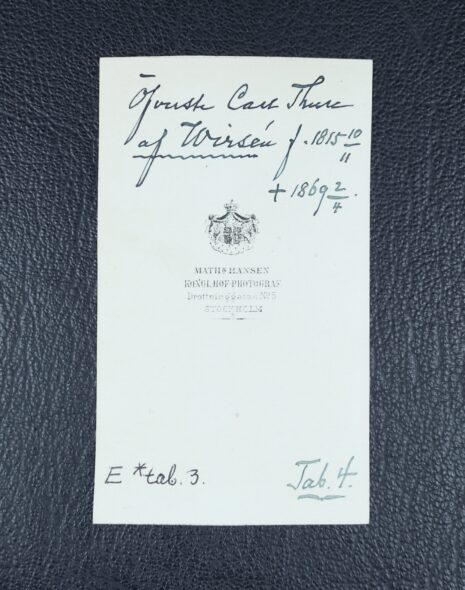 Öfverste Carl Thure
af Wirsén f. 1815 10/11
+ 1869 2/4.
MATHS HANSEN
KONGL. HOF-PHOTOGRAF
Drottninggatan No 5
STOCKHOLM
E *tab. 3.
Tab. 4.